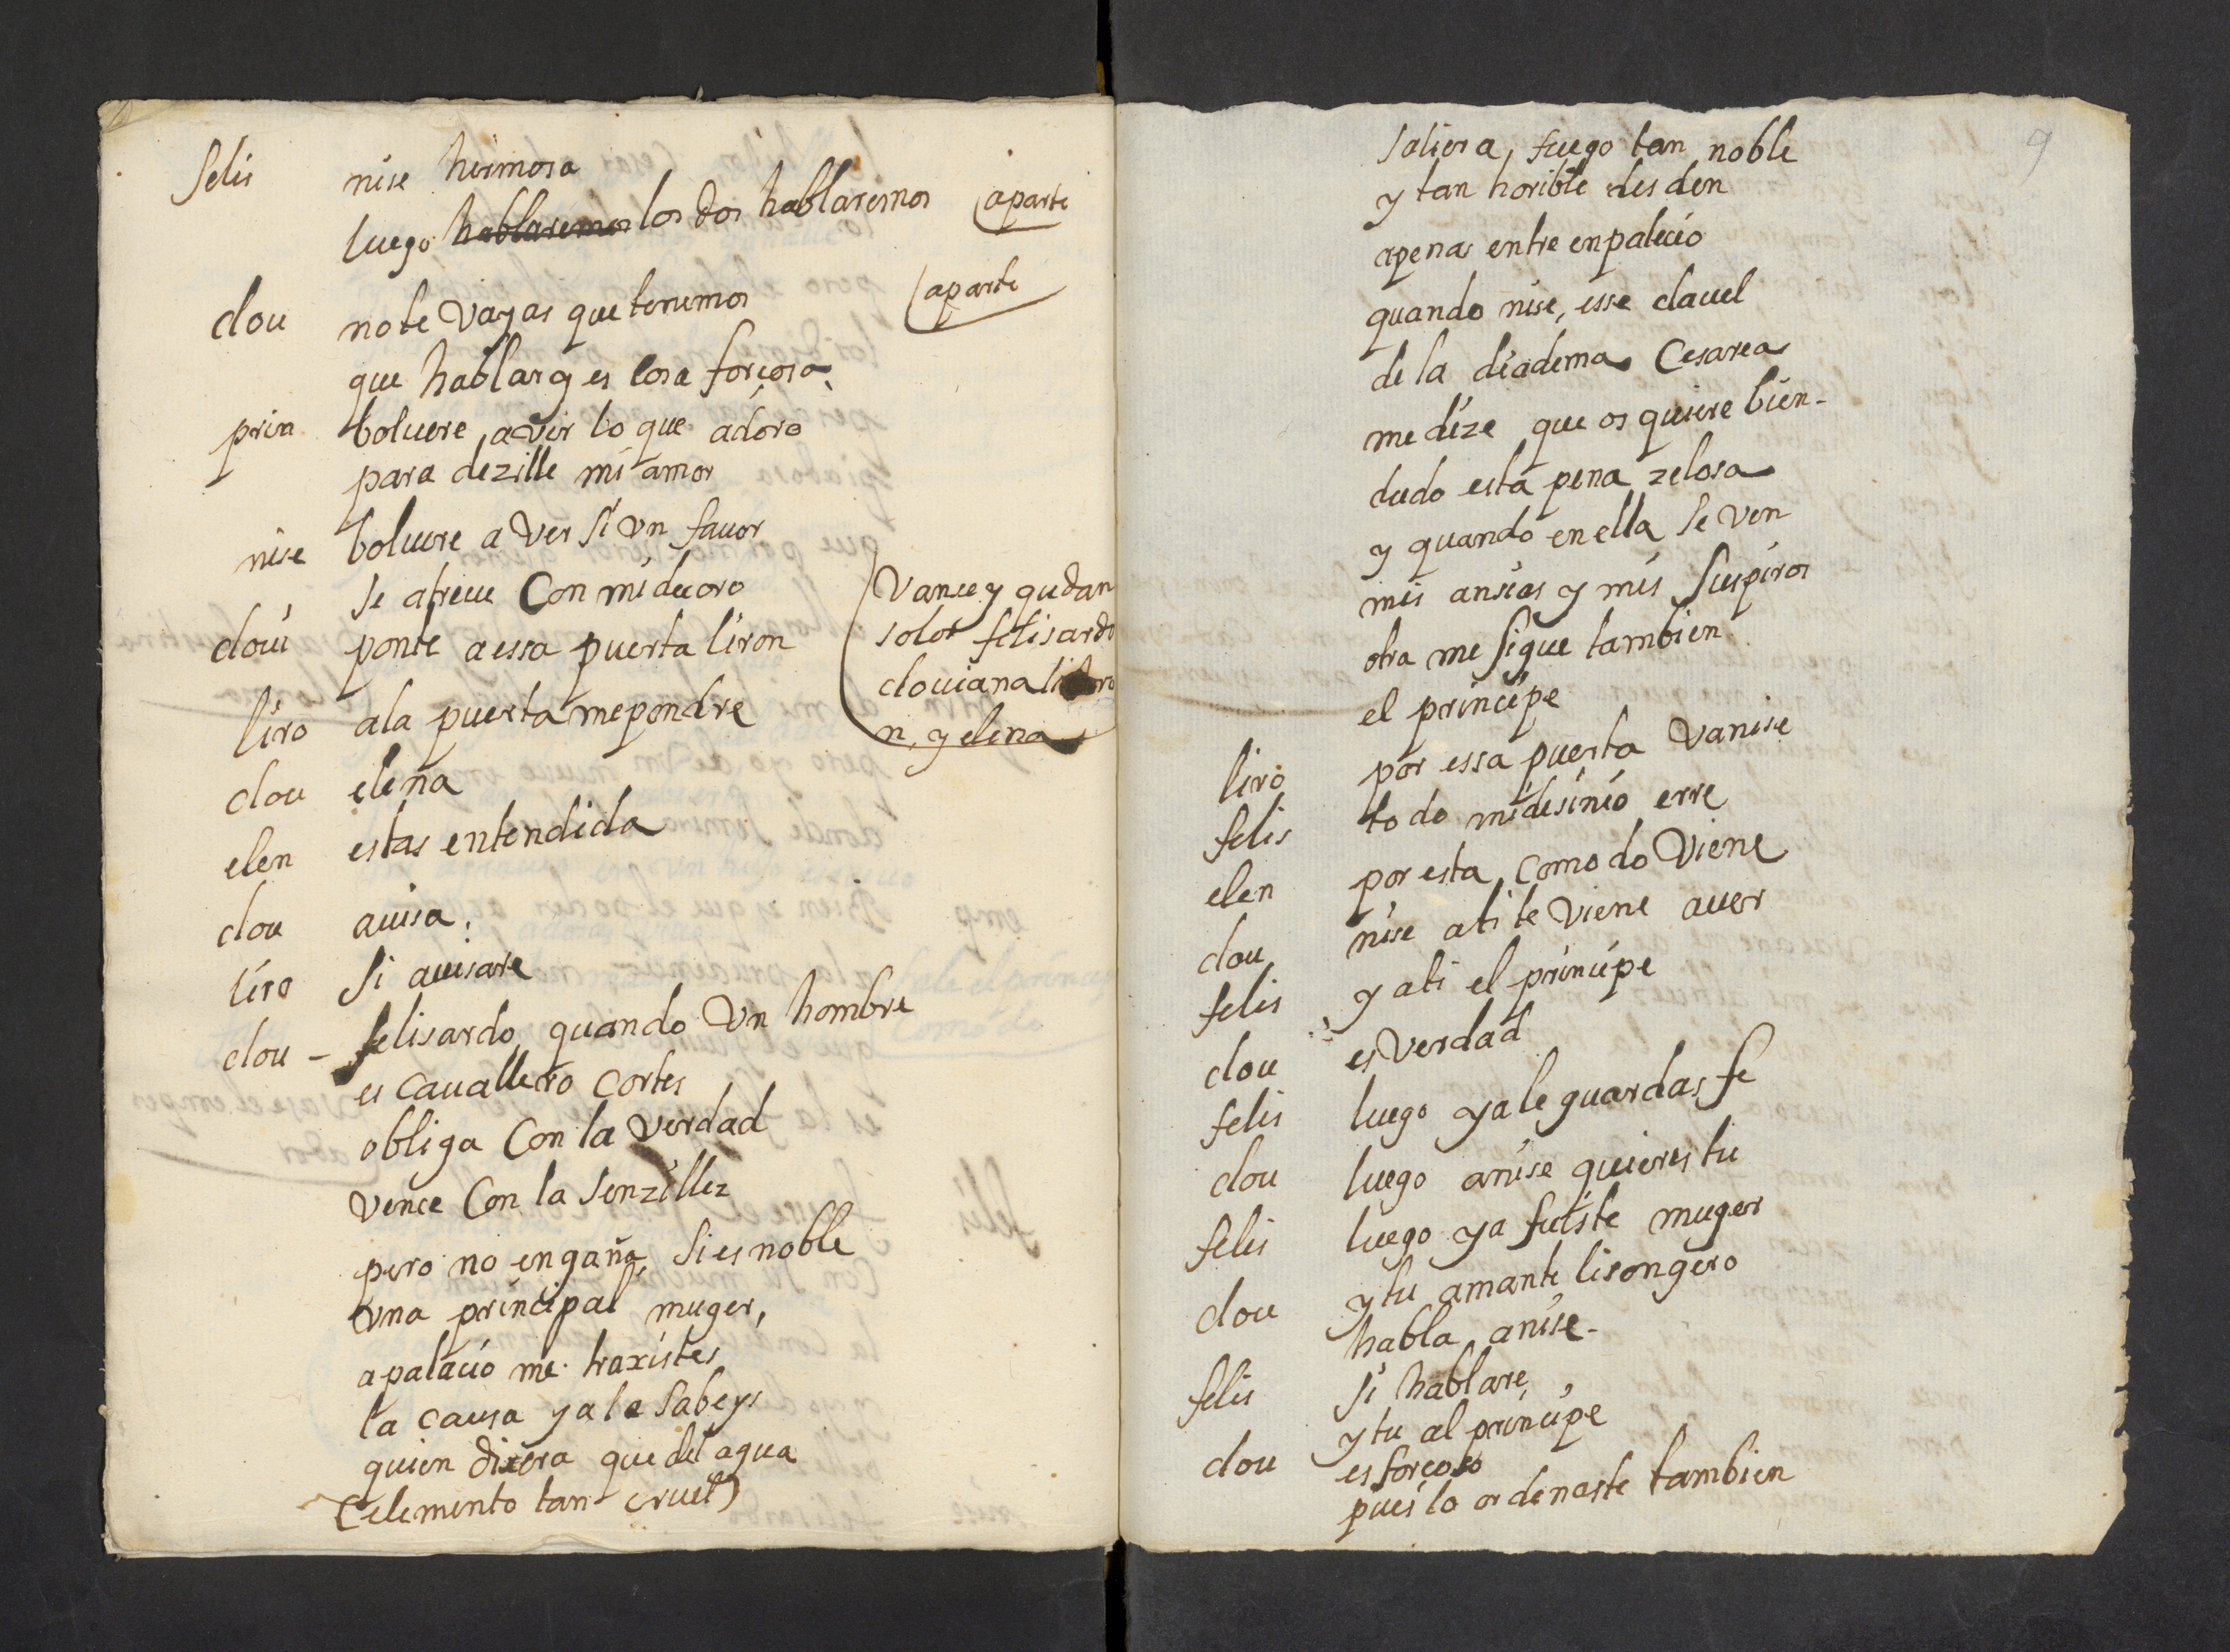 felis nise hermosa
luego hablaremos los dos hablaremos (aparte
clou no te vayas que tenemos (aparte
que hablar y es cosa forçosa.
prin boluere a ver lo que adoro
para dezille mi amor
nise boluere a ver si vn fauor
se atreue Con mi decoro
cloui ponte a essa puerta liron
(vanse y quedan
solos felisardo
clouiana li ro
n, y elena
liro a la puerta me pondre
clou elena
elen estas entendida
clou auisa.
liro si auisare
clou - felisardo quando vn hombre
es cauallero cortes
obliga Con la verdad
vence Con la senzillez
pero no engaña, si es noble
vna principal muger,
a palacio me traxistes
la causa ya la sabeys
quien dixera que del agua
(elemento tan cruel)
9
saliera, fuego tan noble
y tan horible desden
apenas entre en palacio
quando nise, esse clauel
de la diadema Cesarea
me dize que os quiere bien -
dudo esta pena zelosa
y quando en ella se ven
mis ansias y mis suspiros
otra me sigue tambien
el principe
liro por essa puerta va nise
felis todo mi desinio erre
elen por esta, comodo viene
clou nise a ti te viene a uer
felis y a ti el principe
clou es verdad
felis luego ya le guardas fe
clou luego a nise quieres tu
felis luego ya fuiste muger
clou y tu amante lisongero
habla a nise -
felis si hablare,
y tu al principe
clou es forçoso
pues lo ordenaste tambien